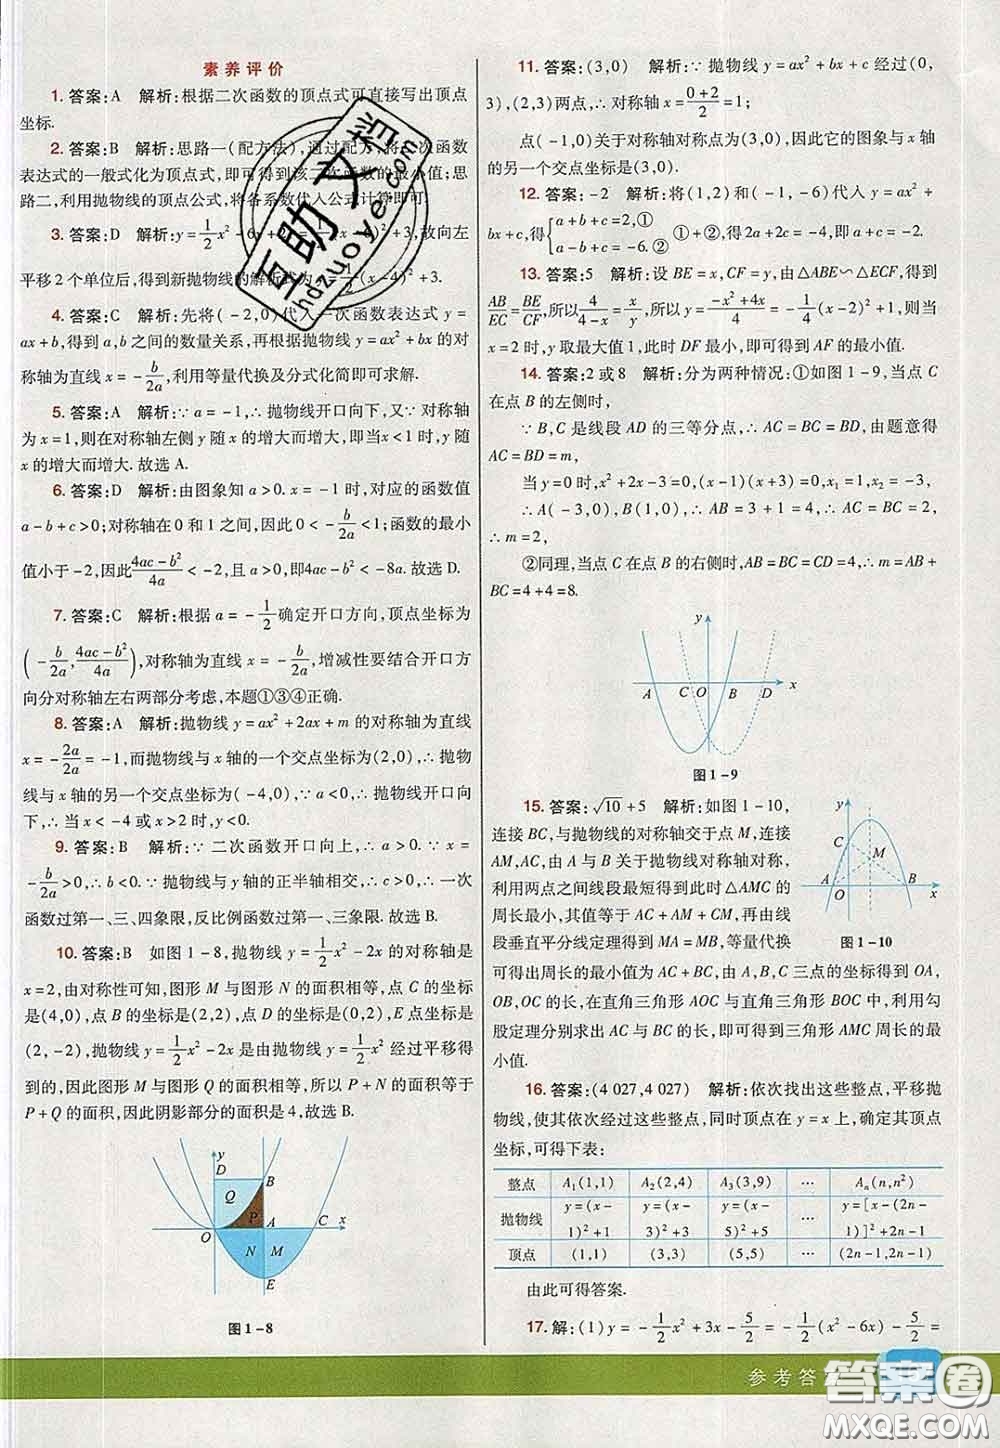 素养评价
1. 答案:A 解析:根据二次函数的顶点式可直接写出顶点
坐标.
2. 答案:B 解析:思路一(配方法),通过配方,将二次函数
表达式的一般式化为顶点式,即可得到该二次函数的最小值;思
路二,利用抛物线的顶点公式,将各系数代入公式计算即可.
3. 答案:D 解析:y=1/2x²-6x+
+3,故向左
平移2个单位后,得到新抛物线的解析式为y=1/2(x-4)²+3.
4. 答案:C 解析:先将(-2,0)代入一次函数表达式y=
ax+b,得到a,b之间的数量关系,再根据抛物线y=ax²+bx的对
称轴为直线x=-b/2a,利用等量代换及分式化简即可求解.
5. 答案:A 解析:∵a=-1,∴抛物线开口向下,又∵对称轴
为x=1,则在对称轴左侧y随x的增大而增大,即当x<1时,y随
x的增大而增大.故选A.
6. 答案:D 解析:由图象知a>0.x=-1时,对应的函数值
a-b+c>0;对称轴在0和1之间,因此0<-b/2a<1;函数的最小
值小于-2,因此(4ac-b²)/4a<-2,且a>0,即4ac-b²<-8a.故选D.
7. 答案:C 解析:根据a=-1/2确定开口方向,顶点坐标为
(-b/2a,(4ac-b²)/4a),对称轴为直线x=-b/2a,增减性要结合开口方
向分对称轴左右两部分考虑,本题①③④正确.
8. 答案:A 解析:抛物线y=ax²+2ax+m的对称轴为直线
x=-2a/2a=-1,而抛物线与x轴的一个交点坐标为(2,0),∴抛物
线与x轴的另一个交点坐标为(-4,0),∵a<0,∴抛物线开口向
下,∴当x<-4或x>2时,y<0.
9. 答案:B 解析:∵二次函数开口向上,∴a>0.∵x=
-b/2a>0,∴b<0.∵抛物线与y轴的正半轴相交,∴c>0,∴一次
函数过第一、三、四象限,反比例函数过第一、三象限.故选B.
10. 答案:B 如图1-8,抛物线y=1/2x²-2x的对称轴是
x=2,由对称性可知,图形M与图形N的面积相等,点C的坐标
是(4,0),点B的坐标是(2,2),点D的坐标是(0,2),E点坐标是
(2,-2),抛物线y=1/2x²-2x是由抛物线y=1/2x²经过平移得
到的,因此图形M与图形Q的面积相等,所以P+N的面积等于
P+Q的面积,因此阴影部分的面积是4,故选B.
y
D
B
Q
P
O
A
C
x
N
M
E
图1-8
11. 答案:(3,0) 解析:抛物线y=ax²+bx+c经过(0,
3),(2,3)两点,∴对称轴x=(0+2)/2=1;
点(-1,0)关于对称轴对称点为(3,0),因此它的图象与x轴
的另一个交点坐标是(3,0).
12. 答案:-2 解析:将(1,2)和(-1,-6)代入y=ax²+
bx+c,得{a+b+c=2,① a-b+c=-6.② ①+②,得2a+2c=-4,即a+c=-2.
13. 答案:5 解析:设BE=x,CF=y,由△ABE∽△ECF,得到
AB/EC=BE/CF,所以4/(4-x)=x/y,所以y=(-x²+4x)/4=-1/4(x-2)²+1,则当
x=2时,y取最大值1,此时DF最小,即可得到AF的最小值.
14. 答案:2或8 解析:分为两种情况:①如图1-9,当点C
在点B的左侧时,
∵B,C是线段AD的三等分点,∴AC=BC=BD,由题意得
AC=BD=m,
当y=0时,x²+2x-3=0,(x-1)(x+3)=0,x₁=1,x₂=-3,
∴A(-3,0),B(1,0),∴AB=3+1=4,∴AC=BC=2,
∴m=2,
②同理,当点C在点B的右侧时,AB=BC=CD=4,∴m=AB+
BC=4+4=8.
y
A
C
O
B
D
x
图1-9
15. 答案:√10+5 解析:如图1-10,
连接BC,与抛物线的对称轴交于点M,连接
AM,AC,由A与B关于抛物线对称轴对称,
利用两点之间线段最短得到此时△AMC的
周长最小,其值为AC+AM+CM,再由线
段垂直平分线定理得到MA=MB,等量代换
可得出周长的最小值为AC+BC,由A,B,C三点的坐标得到OA,
OB,OC的长,在直角三角形AOC与直角三角形BOC中,利用勾
股定理分别求出AC与BC的长,即可得到三角形AMC周长的最
小值.
y
C
M
A
O
B
x
图1-10
16. 答案:(4 027,4 027) 解析:依次找出这些整点,平移抛
物线,使其依次经过这些整点,同时顶点在y=x上,确定其顶点
坐标,可得下表:
整点 A₁(1,1) A₂(2,4) A₃(3,9) … Aₙ(n,n²)
抛物线 y=(x-1)²+1 y=(x-3)²+3 y=(x-5)²+5 … y=[x-(2n-1)]²+2n-1
顶点 (1,1) (3,3) (5,5) … (2n-1,2n-1)
由此可得答案.
17. 解:(1)y=-1/2x²+3x-5/2=-1/2(x²-6x)-5/2=
参考答
答案圈
MXQE.COM
互助文档
hdzuoye.com